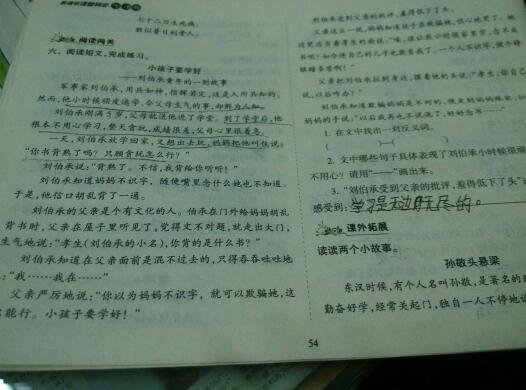 七十二刃生死痛，
胜似昔日刮骨人。
阅读闯关
六、阅读短文，完成练习。
小孩子要学好
——刘伯承童年的一则故事
军事家刘伯承，用兵如神，指挥若定，这是人所共知的。
然而，他小时候顽皮过学，令父母生气的事，却鲜为人知。
刘伯承刚满5岁，父母就送他进了学堂。到了学堂后，他
根本不用心学习，整天贪玩，成绩很差，父母心里很着急。
一天，刘伯承放学回家，又想出去玩，妈妈把他叫住说：
“你书背熟了吗？只顾贪玩怎么行？”
刘伯承说：“背熟了。不信，我背给你听听！”
刘伯承知道妈妈不识字，随便嘴里念什么她也不知道。
于是，他信口胡乱背了一通。
刘伯承的父亲是个有文化的人。伯承在门外给妈妈胡乱
背书时，父亲在屋子里听见了，觉得文不对题，就走出大门，
生气地说：“孝生（刘伯承的小名），你背的是什么书？”
刘伯承知道在父亲面前是混不过去的，只得吞吞吐吐地
：“我……我在……”
父亲严厉地说：“你以为妈妈不识字，就可以欺骗她，这
能行。小孩子要学好！”
刘伯承受到父亲的批评，羞得低下了头。
父亲把刘伯承拉到身边，摸着他的头说：“孝生，你自己
说，以后咋办？”
刘伯承知道欺骗妈妈是不对的，
妈妈的手说：“以后我再也不说谎了，
1. 在文中找出一对反义词。
（　　）——（　　）
2. 文中哪些句子具体表现了刘伯承小时候很顽
不用心？请用“——”画出来。
3. “刘伯承受到父亲的批评，羞得低下了头”
感受到：学习是无边无尽的。
课外拓展
读读两个小故事。
孙敬头悬梁
东汉时候，有个人名叫孙敬，是著名的政
勤奋好学，经常关起门，独自一人不停地读
54